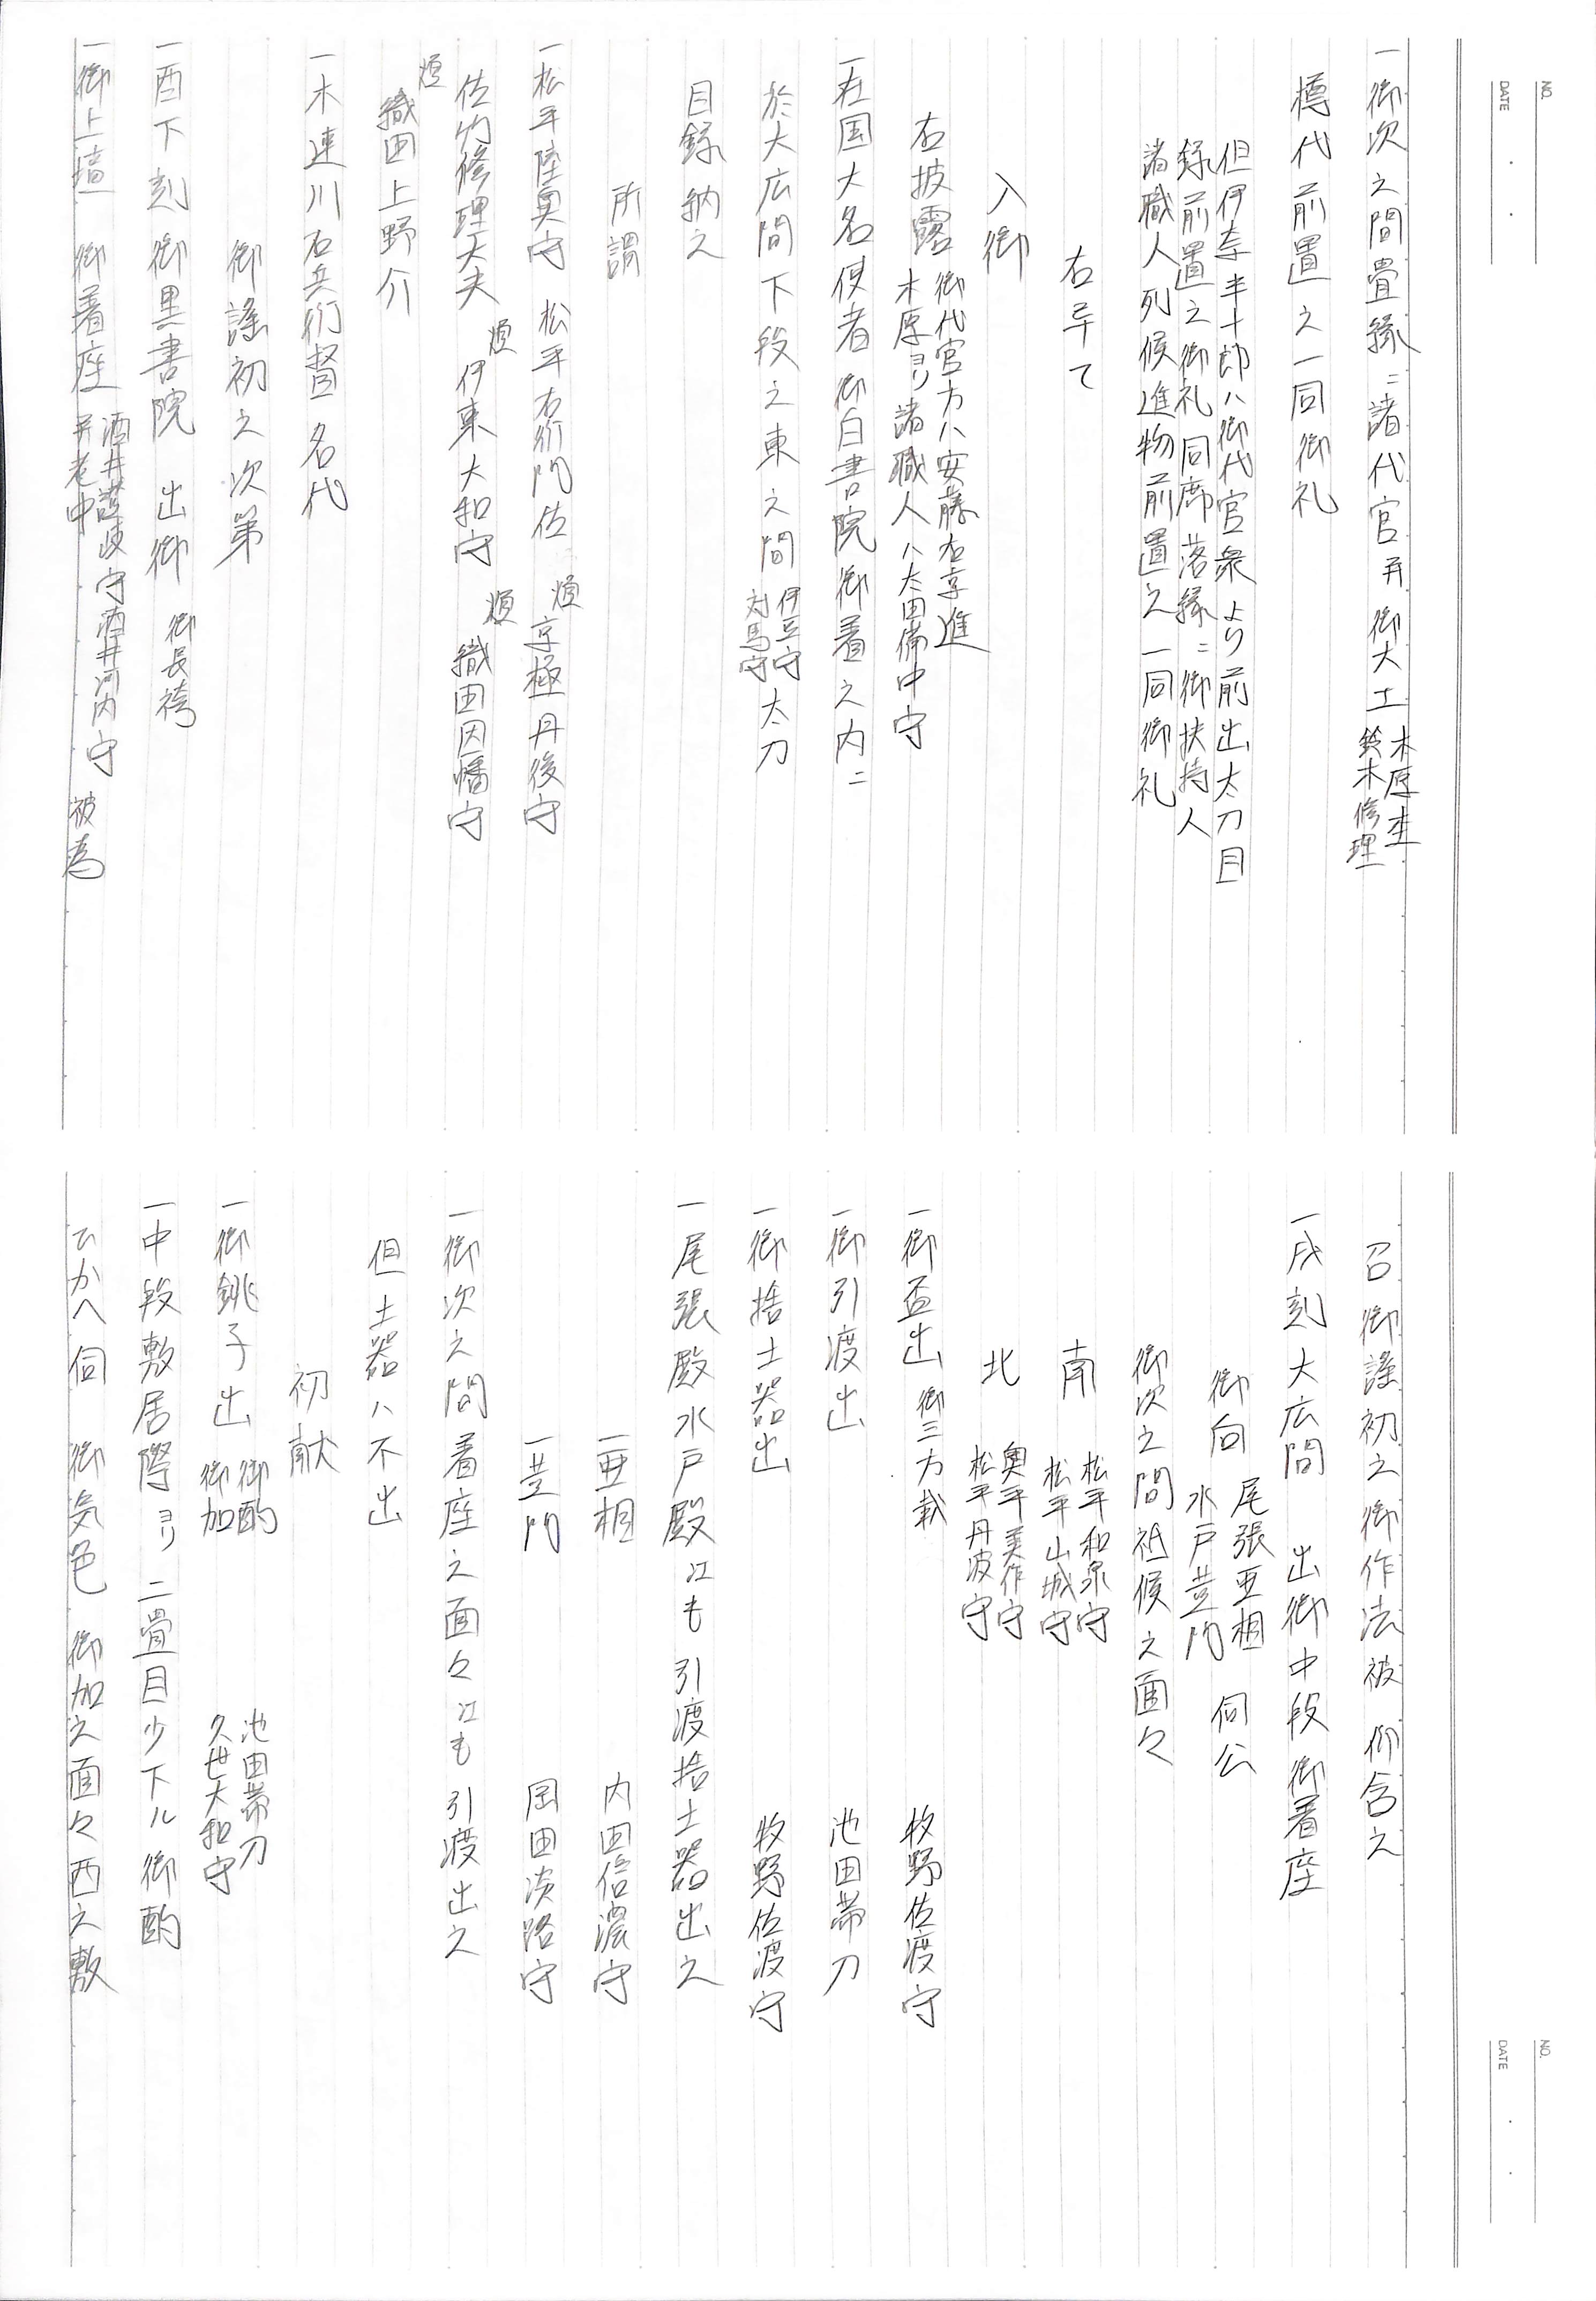 一御次之間畳縁ニ諸代官并御大工 木原杢 鈴木修理
樽代前置之一同御礼
但伊奈半十郎ハ御代官衆より前出太刀目
録前置之御礼同席落縁ニ御扶持人
諸職人列候進物前置之一同御礼
右畢て
入御
右披露 御代官方ハ安藤右京進
木原ヨリ諸職人ハ太田備中守
一在国大名使者御白書院御着之内ニ
於大広間下段之東之間 伊豆守 対馬守 太刀
目録納之
所謂
一松平陸奥守 松平右衛門佐 煩 京極丹後守
佐竹修理大夫 煩 伊東大和守 煩 織田因幡守
煩 織田上野介
一木連川右兵衛督名代
御謡初之次第
一酉下刻御黒書院 出御 御長袴
一御上壇 御着座 酒井讃岐守 酒井河内守 并老中 被為
召御謡初之御作法被 仰含之
一戌刻大広間 出御中段御着座
御向 尾張亜相 水戸黄門 伺公
御次之間祗候之面々
南 松平和泉守 松平山城守
北 奥平美作守 松平丹波守
一御盃出 御三方載 牧野佐渡守
一御引渡出 池田帯刀
一御捨土器出 牧野佐渡守
一尾張殿水戸殿江も引渡捨土器出之
一亜相 内田信濃守
一黄門 岡田淡路守
一御次之間着座之面々江も引渡出之
但土器ハ不出
初献
一御銚子出 御酌 御加 池田帯刀 久世大和守
一中段敷居際ヨリ二畳目少下ル御酌
ひかへ伺 御気色 御加之面々西之敷
NO.
DATE
NO.
DATE